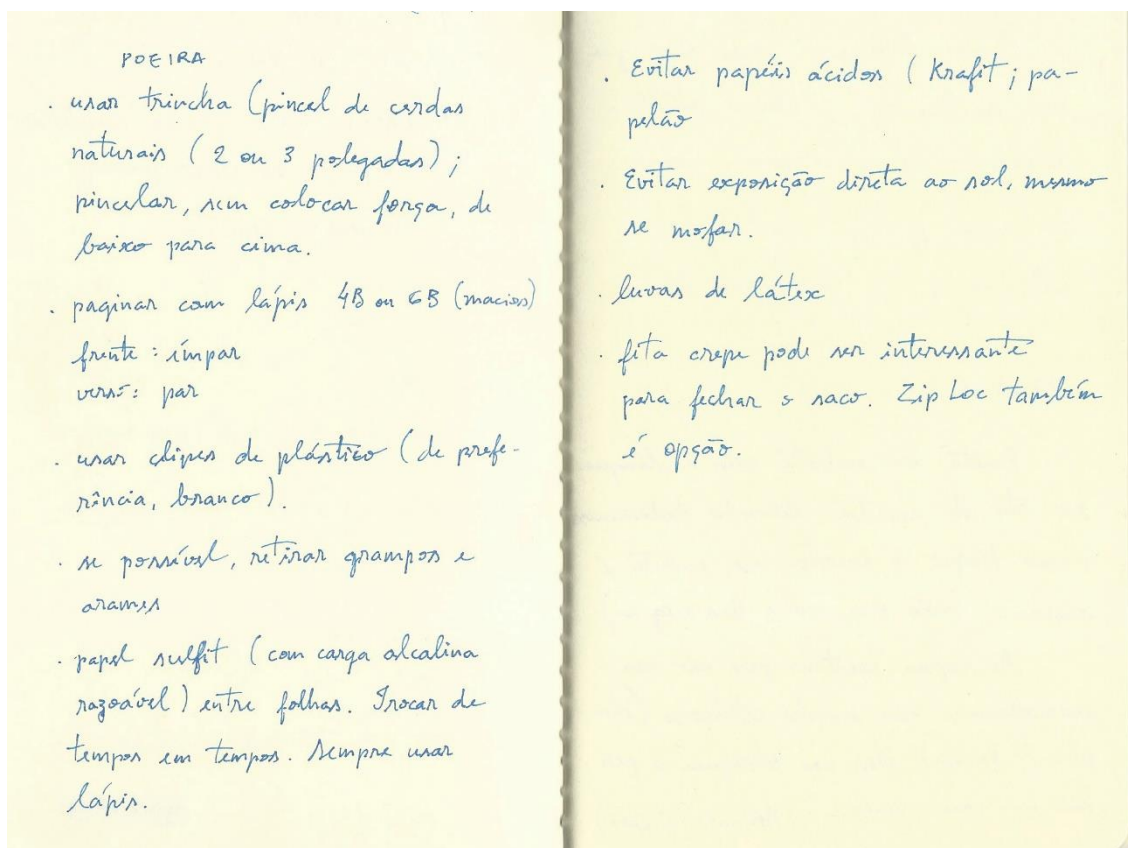 POEIRA
. usar trincha (pincel de cerdas
naturais (2 ou 3 polegadas);
pincelar, sem colocar força, de
baixo para cima.
. paginar com lápis 4B ou 6B (macios)
frente: ímpar
verso: par
. usar clipes de plástico (de prefe-
rência, branco).
. se possível, retirar grampos e
arames
. papel sulfit (com carga alcalina
razoável) entre folhas. Trocar de
tempos em tempos. Sempre usar
lápis.
. Evitar papéis ácidos (Krafit; pa-
pelão
. Evitar exposição direta ao sol, mesmo
se mofar.
. luvas de látex
. fita crepe pode ser interessante
para fechar o saco. Zip Loc também
é opção.